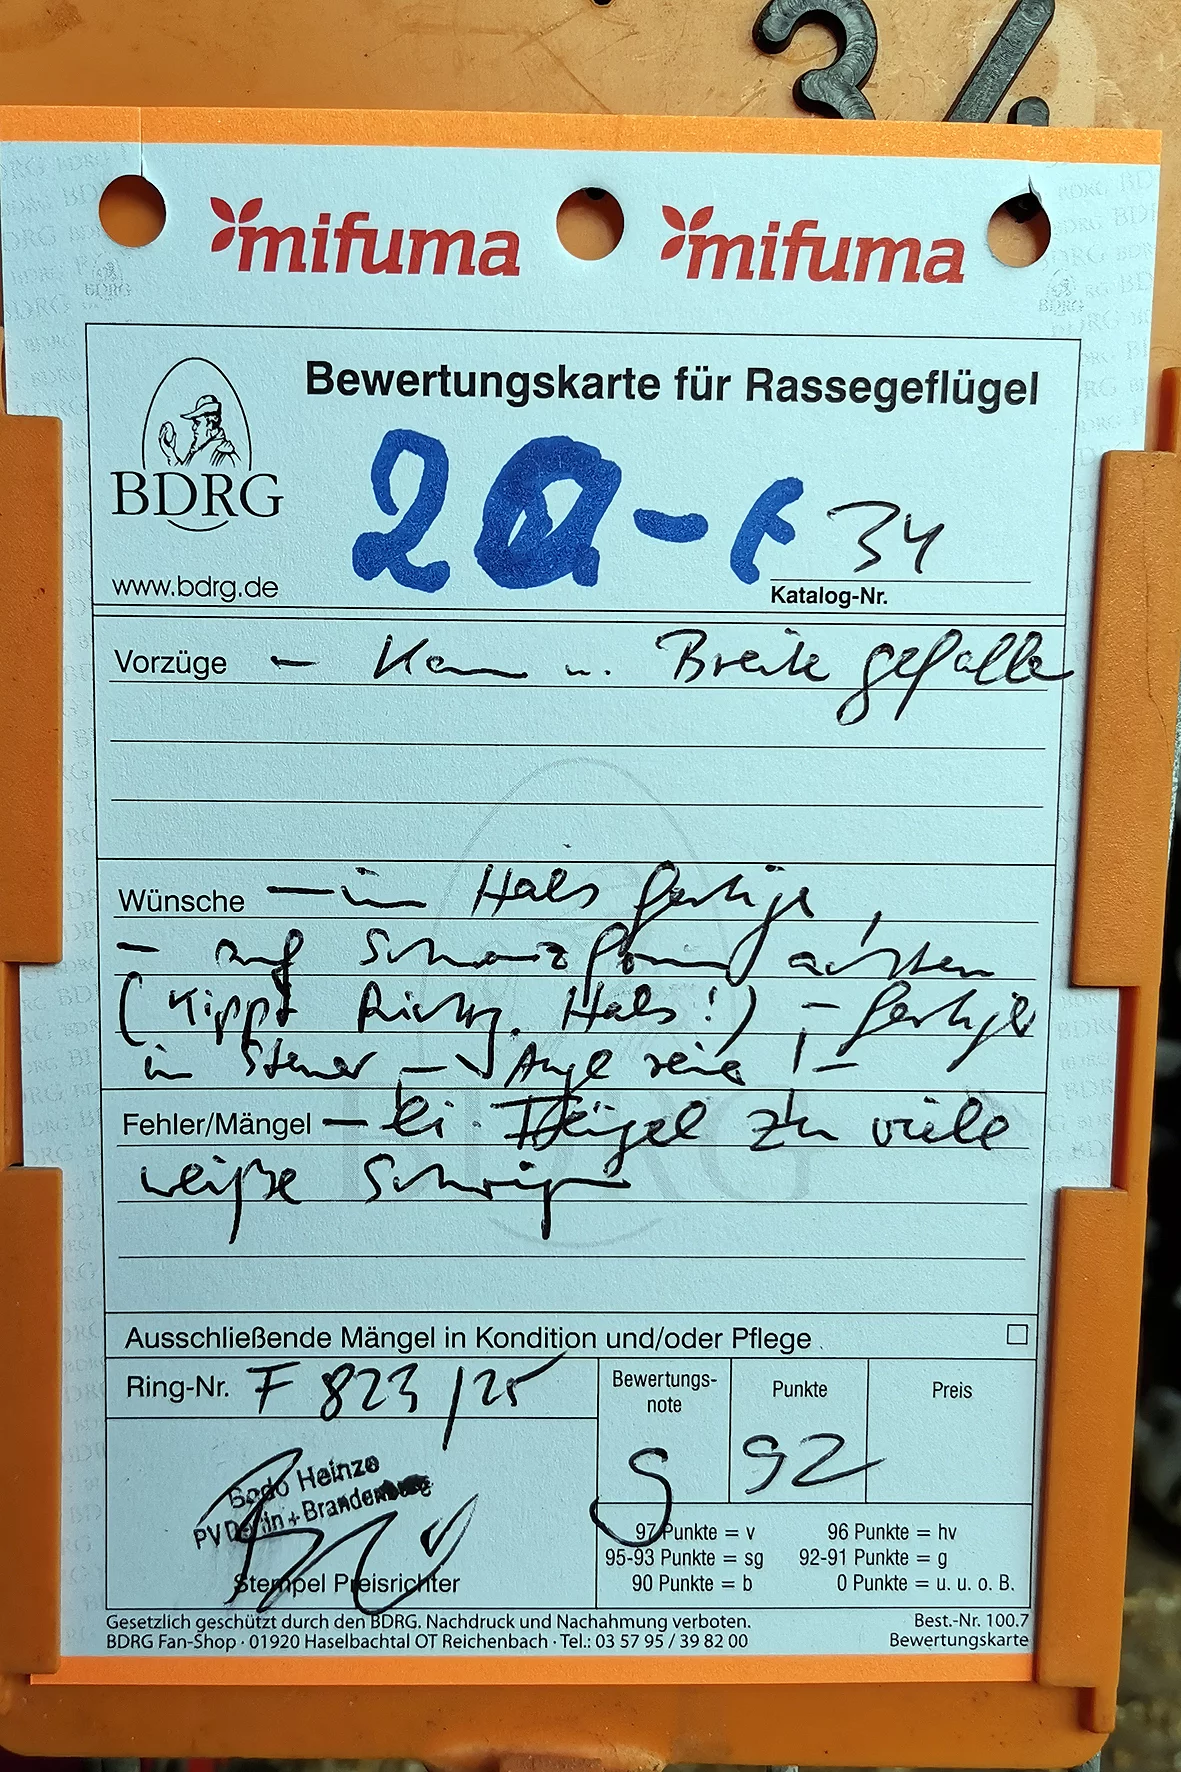 34
mifuma mifuma
Bewertungskarte für Rassegeflügel
BDRG
www.bdrg.de
34
Katalog-Nr.
Vorzüge – u. Breite gefalle
Wünsche – im Hals fertiger,
– auf Schwanzform achten
(Kippt Richtg. Hals!), – fertiger
in Steuer – Auge reiner! –
Fehler/Mängel – bei Flügel zu viele
weiße Schwingen
Ausschließende Mängel in Kondition und/oder Pflege
Ring-Nr. F 823/25
Bewertungs-
note
Punkte
Preis
g
92
Bodo Heinze
PV Berlin + Brandenburg
Stempel Preisrichter
97 Punkte = v 96 Punkte = hv
95-93 Punkte = sg 92-91 Punkte = g
90 Punkte = b 0 Punkte = u. u. o. B.
Gesetzlich geschützt durch den BDRG. Nachdruck und Nachahmung verboten. Best.-Nr. 100.7
BDRG Fan-Shop · 01920 Haselbachtal OT Reichenbach · Tel.: 03 57 95 / 39 82 00 Bewertungskarte